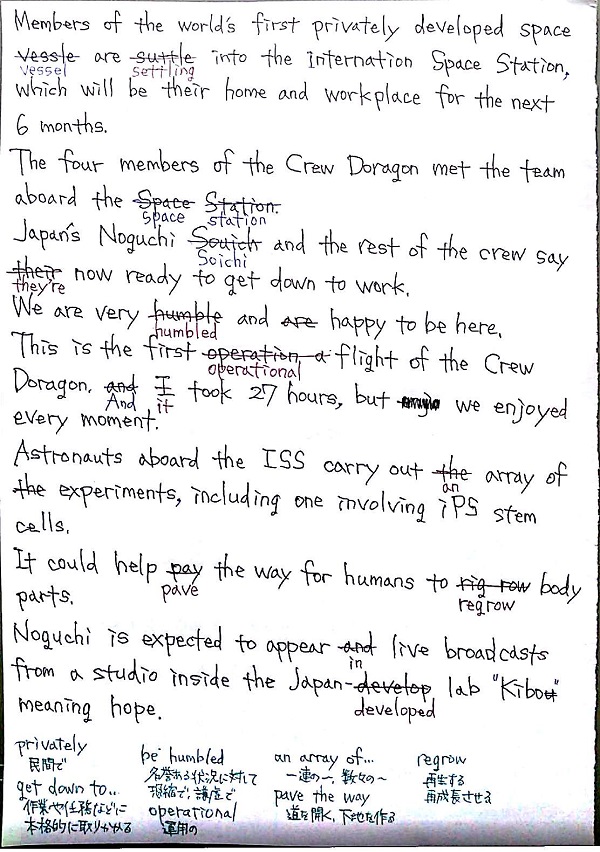 Members of the world's first privately developed space
vessle are suttle into the Internation Space Station,
vessel settling
which will be their home and workplace for the next
6 months.
The four members of the Crew Doragon met the team
aboard the Space Station.
space station
Japan's Noguchi Souich and the rest of the crew say
Soichi
their now ready to get down to work.
they're
We are very humble and are happy to be here.
humbled
This is the first operation a flight of the Crew
operational
Doragon. and I took 27 hours, but we enjoyed
And it
every moment.
Astronauts aboard the ISS carry out the array of
an
the experiments, including one involving iPS stem
cells.
It could help pay the way for humans to rig row body
pave
parts. regrow
Noguchi is expected to appear and live broadcasts
in
from a studio inside the Japan-develop lab "Kibou"
developed
meaning hope.
privately be humbled an array of... regrow
民間で 名誉ある状況に対して 一連の〜, 数々の〜 再生する
恐縮で, 謙虚で 再成長させる
get down to.. operational pave the way
作業や任務などに 運用の 道を開く, 下地を作る
本格的に取りかかる